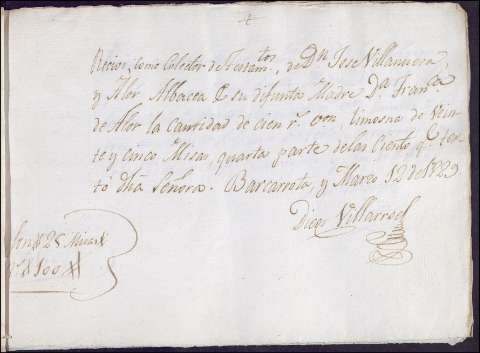 Recivi, como Colector de Testam.tos, de Dn. Jose Villanueva,
y Alor Albacea de su difunta Madre Da. Fran.ca
de Alor la cantidad de cien r.s von, limosna de vein-
te y cinco Misas, quarta parte de las Ciento q.e tes-
tó dha Señora. Barcarrota, y Marzo 12 de 1829
Diego Villarroel
Son # 25 Misas #
# 100 #